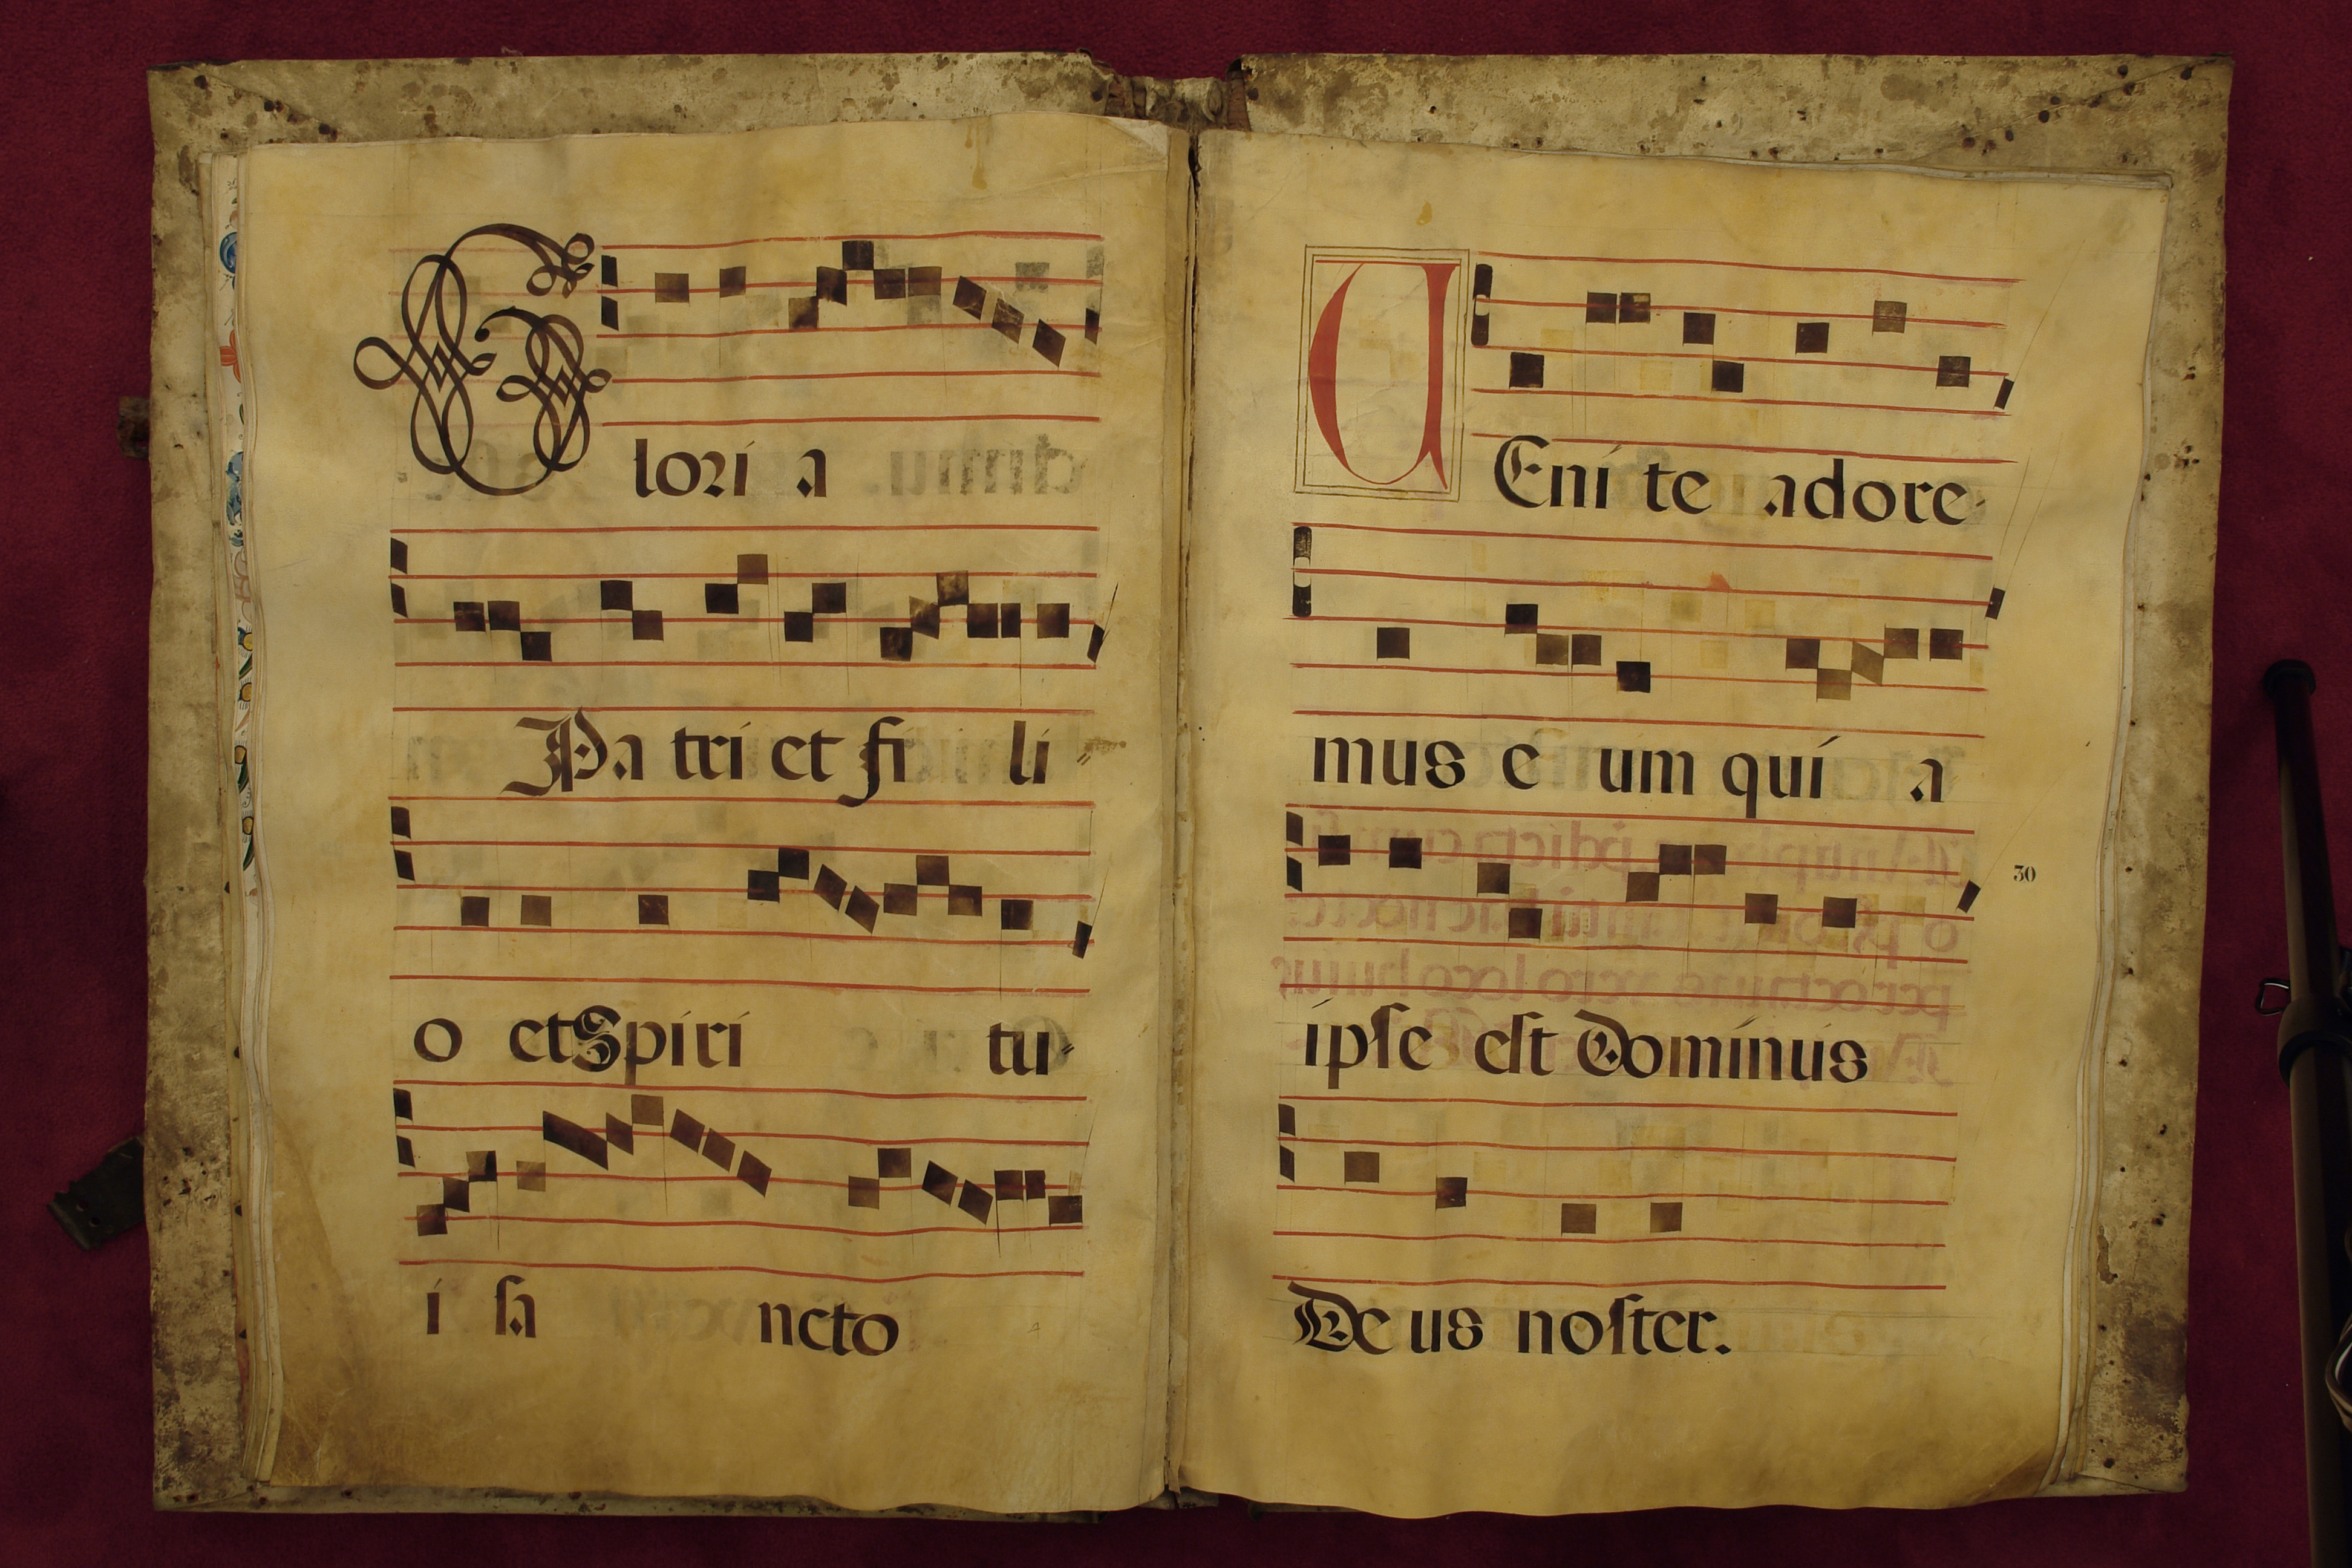 Glori a
Pa tri et fi li
o et Spiri tu
i sa ncto
UEni te adore
mus e um qui a
ipse est Dominus
30
De us noster.